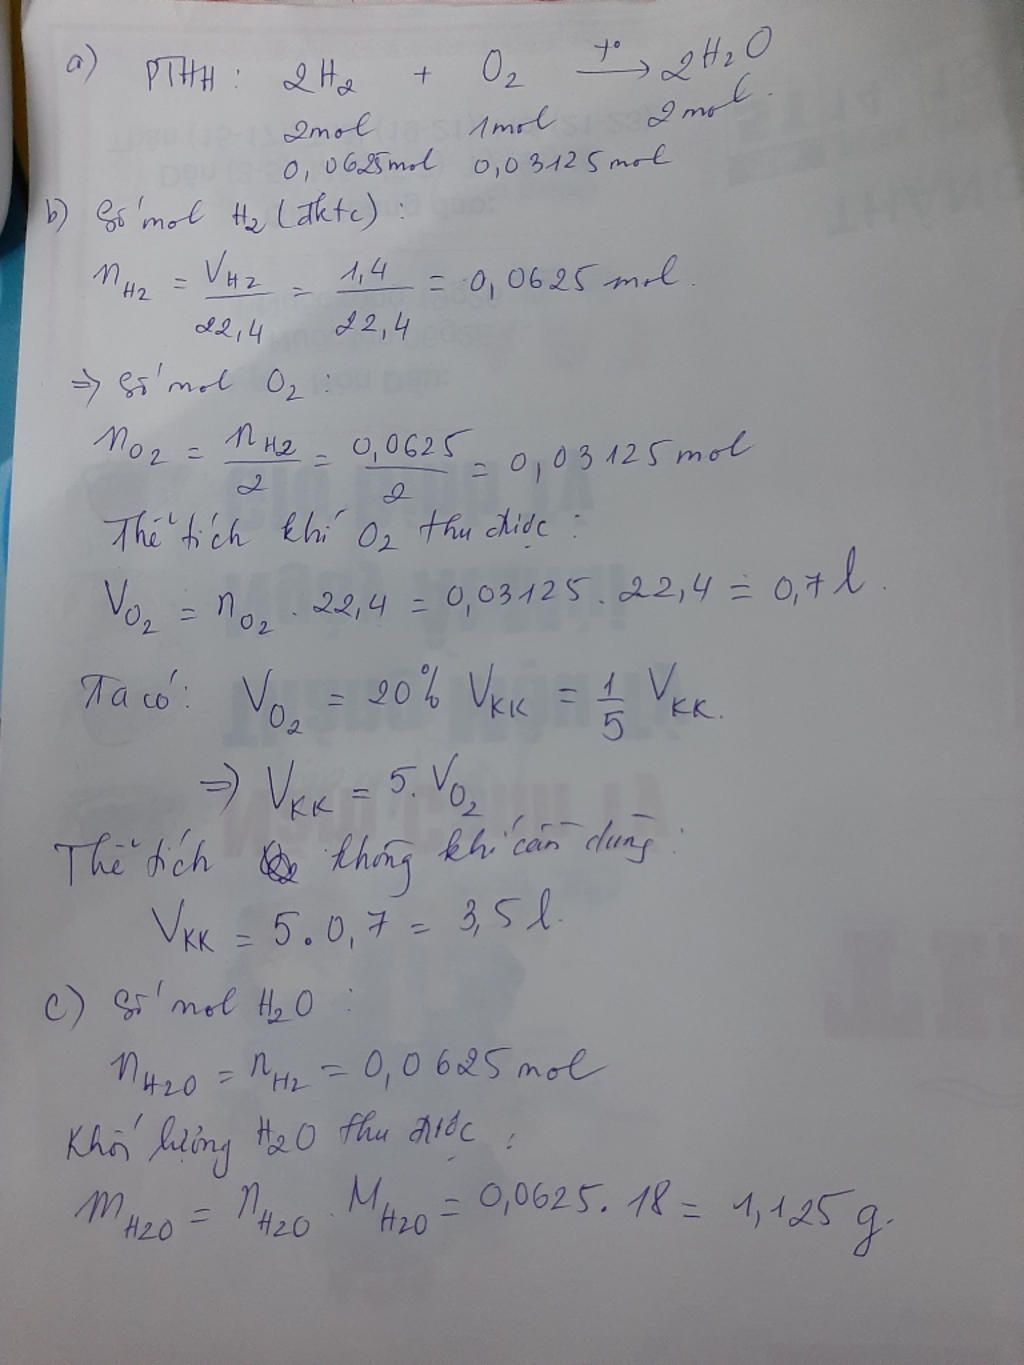 a) PTHH: 2H₂ + O₂ t°→ 2H₂O
2mol 1mol 2mol.
0,0625mol 0,03125mol
b) Số mol H₂ (đktc):
n_H2 = V_H2/22,4 = 1,4/22,4 = 0,0625 mol.
⇒ Số mol O₂ :
n_O2 = n_H2/2 = 0,0625/2 = 0,03125 mol
Thể tích khí O₂ thu được :
V_O2 = n_O2 . 22,4 = 0,03125 . 22,4 = 0,7 l.
Ta có: V_O2 = 20% V_KK = 1/5 V_KK.
⇒ V_KK = 5. V_O2
Thể tích không khí cần dùng:
V_KK = 5.0,7 = 3,5 l.
c) Số mol H₂O :
n_H2O = n_H2 = 0,0625 mol
Khối lượng H₂O thu được :
m_H2O = n_H2O . M_H2O = 0,0625. 18 = 1,125 g.